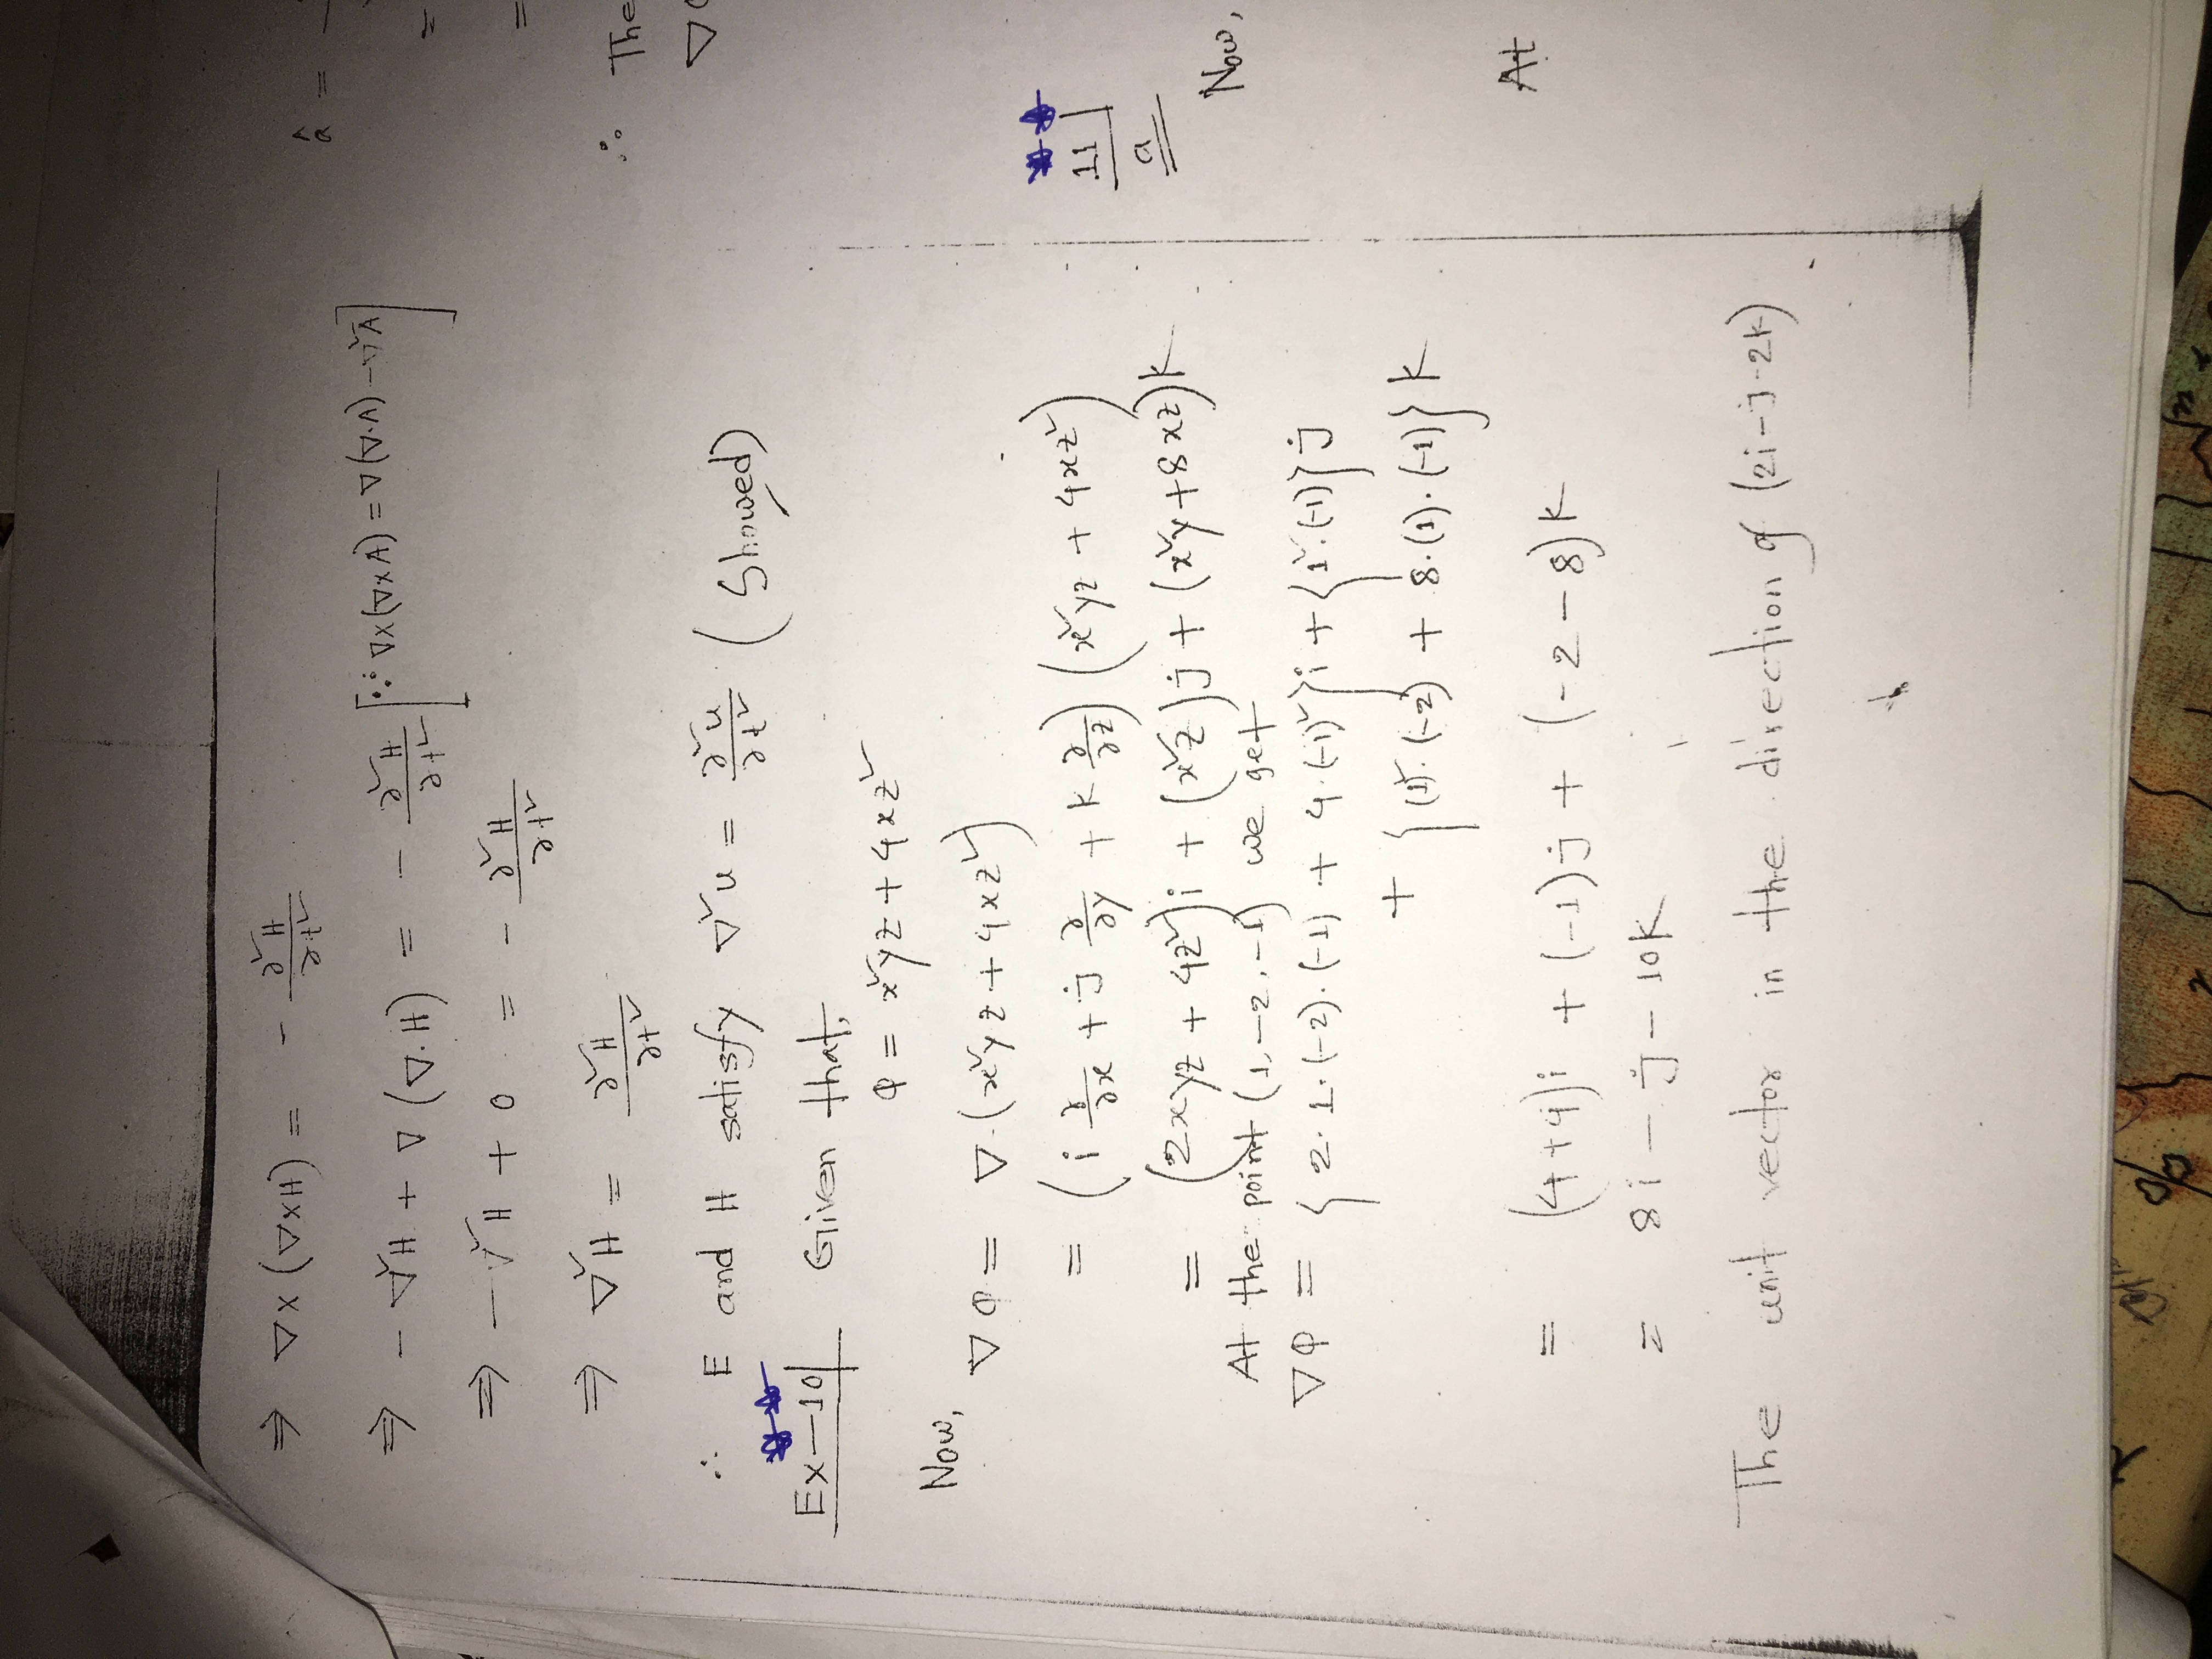 ⇒ ∇×(∇×H) = - ∂²H/∂t²
⇒ - ∇²H + ∇(∇.H) = - ∂²H/∂t² [∵ ∇×(∇×A) = ∇(∇.A) - ∇²A]
⇒ - ∇²H + 0 = - ∂²H/∂t²
⇒ ∇²H = ∂²H/∂t²
∴ E and H satisfy ∇²u = ∂²u/∂t² (Showed)
Ex-10 Given that,
φ = x²yz + 4xz²
Now,
∇φ = ∇.(x²yz + 4xz²)
= (i ∂/∂x + j ∂/∂y + k ∂/∂z) (x²yz + 4xz²)
= (2xyz + 4z²)i + (x²z)j + (x²y + 8xz)k
At the point (1,-2,-1) we get
∇φ = {2.1.(-2).(-1) + 4.(-1)²}i + {1².(-1)}j
+ {(1)².(-2) + 8.(1).(-1)}k
= (4+4)i + (-1)j + (-2-8)k
= 8i - j - 10k
The unit vector in the direction of (2i-j-2k)
â =
=
=
∴ The
∇
11
a
Now,
At